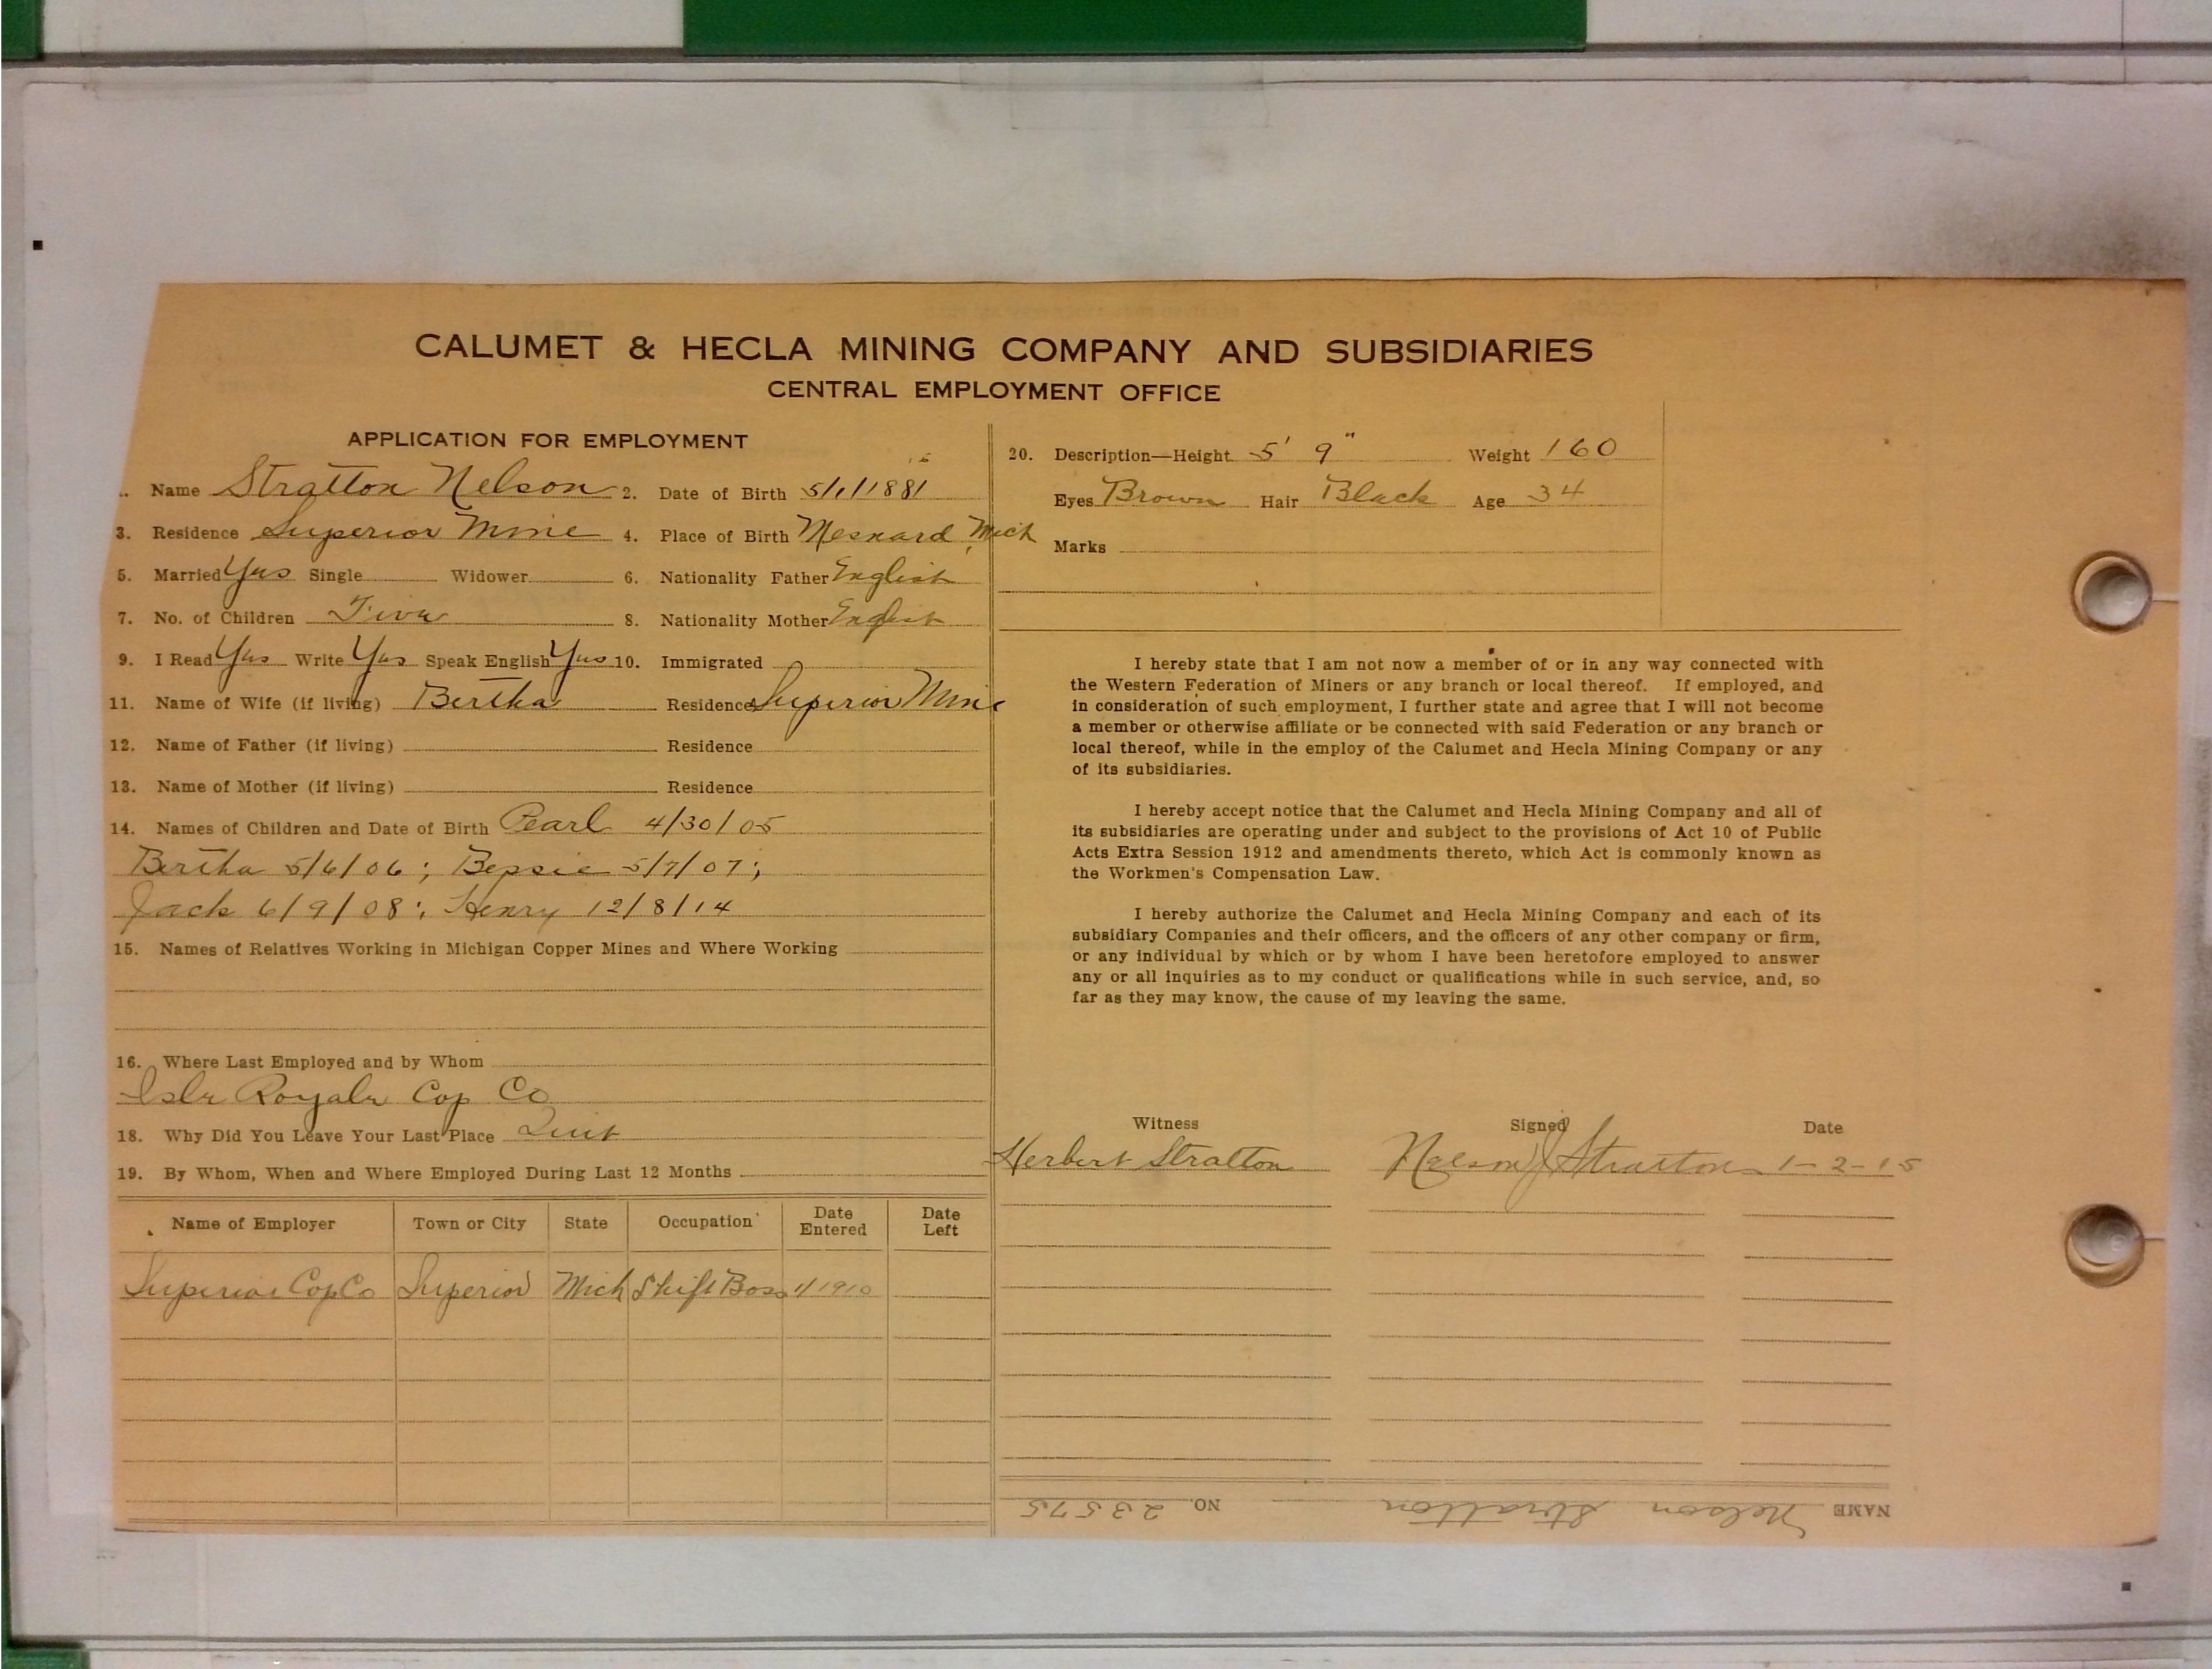 CALUMET & HECLA MINING COMPANY AND SUBSIDIARIES
CENTRAL EMPLOYMENT OFFICE
APPLICATION FOR EMPLOYMENT
Name Stratton Nelson 2. Date of Birth 5/1/1881
3. Residence Superior Mine 4. Place of Birth Mesnard, Mich
5. Married Yes Single Widower 6. Nationality Father English
7. No. of Children Five 8. Nationality Mother English
9. I Read Yes Write Yes Speak English Yes 10. Immigrated
11. Name of Wife (if living) Bertha Residence Superior Mine
12. Name of Father (if living) Residence
13. Name of Mother (if living) Residence
14. Names of Children and Date of Birth Pearl 4/30/05
Bertha 5/6/06; Bessie 5/7/07;
Jack 6/9/08; Henry 12/8/14
15. Names of Relatives Working in Michigan Copper Mines and Where Working
16. Where Last Employed and by Whom
Isle Royale Cop Co
18. Why Did You Leave Your Last Place Quit
19. By Whom, When and Where Employed During Last 12 Months
Name of Employer Town or City State Occupation Date Entered Date Left
Superior Cop Co Superior Mich Shift Boss 1/1910
20. Description—Height 5' 9" Weight 160
Eyes Brown Hair Black Age 34
Marks
I hereby state that I am not now a member of or in any way connected with
the Western Federation of Miners or any branch or local thereof. If employed, and
in consideration of such employment, I further state and agree that I will not become
a member or otherwise affiliate or be connected with said Federation or any branch or
local thereof, while in the employ of the Calumet and Hecla Mining Company or any
of its subsidiaries.
I hereby accept notice that the Calumet and Hecla Mining Company and all of
its subsidiaries are operating under and subject to the provisions of Act 10 of Public
Acts Extra Session 1912 and amendments thereto, which Act is commonly known as
the Workmen's Compensation Law.
I hereby authorize the Calumet and Hecla Mining Company and each of its
subsidiary Companies and their officers, and the officers of any other company or firm,
or any individual by which or by whom I have been heretofore employed to answer
any or all inquiries as to my conduct or qualifications while in such service, and, so
far as they may know, the cause of my leaving the same.
Witness Signed Date
Herbert Stratton Nelson J Stratton 1-2-15
NAME Nelson Stratton NO. 23575